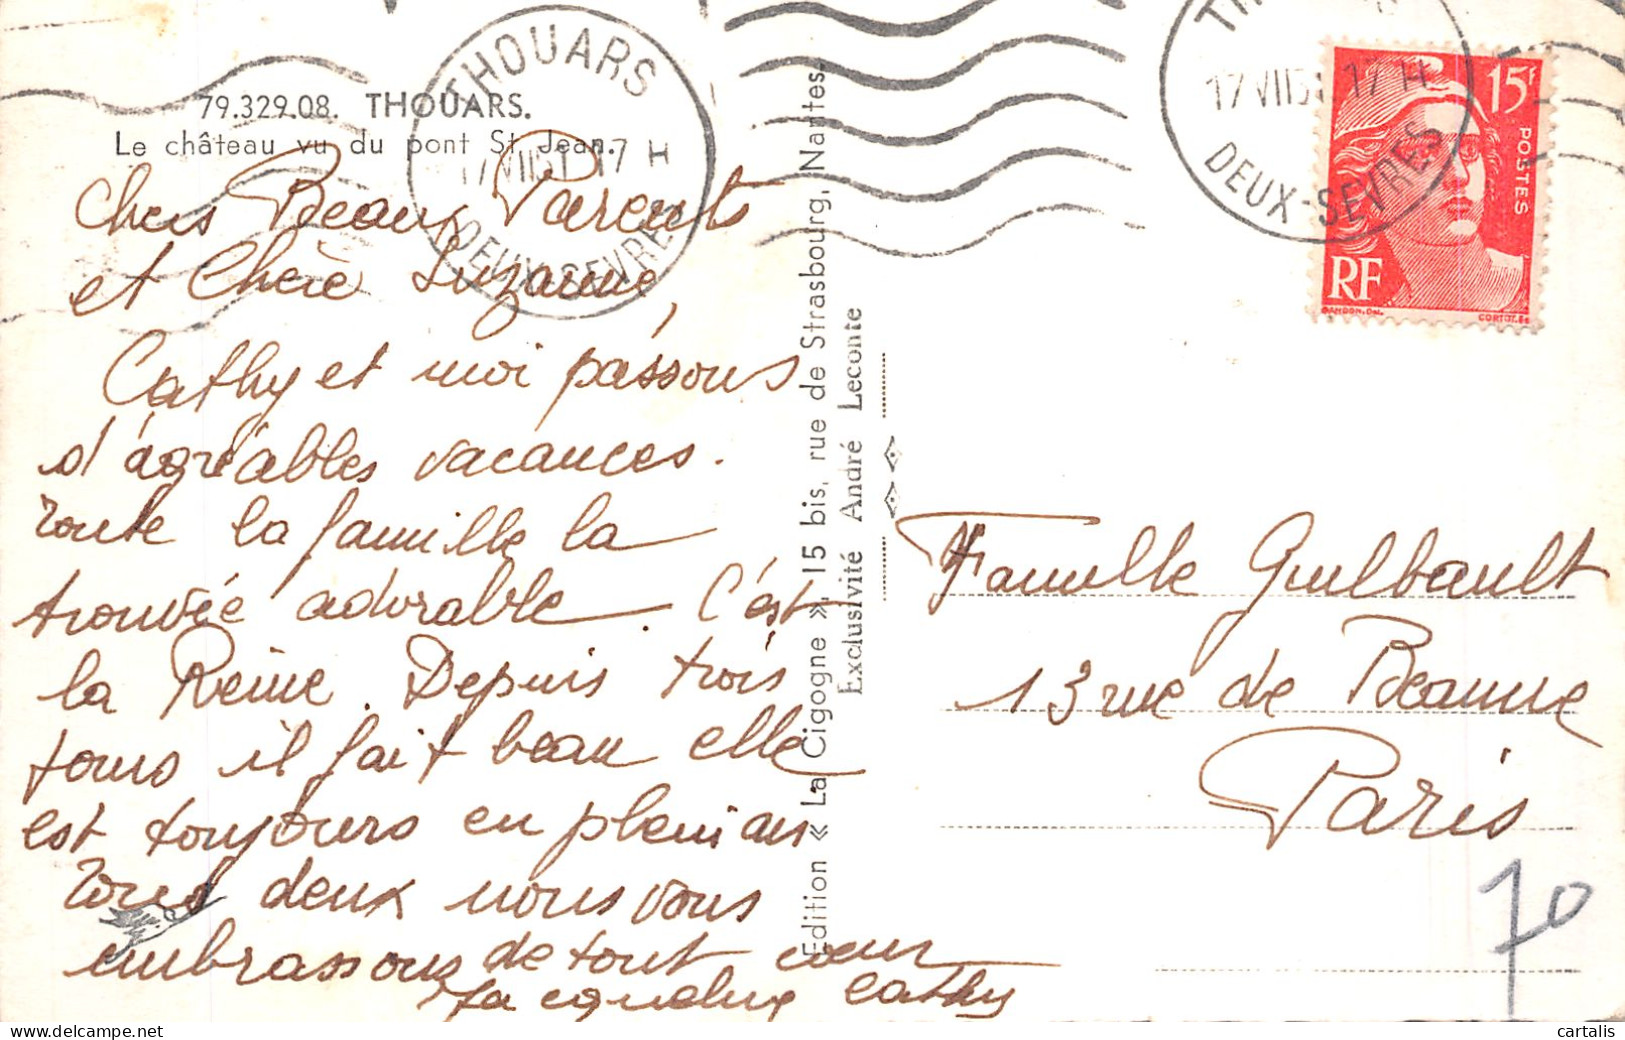 79.329.08. THOUARS.
Le château vu du pont St Jean.
THOUARS
17 VII 51 17 H
DEUX-SEVRES
17 VII 5 17 H
DEUX-SEVRES
15F
POSTES
RF
GANDON. DEL.
CORTOT. SC
Chers Beaux Parents
et Chère Suzanne,
Cathy et moi passons
d'agréables vacances.
Toute la famille la
trouvée adorable. C'est
la Reine. Depuis trois
jours il fait beau elle
est toujours en plein air.
Tous deux nous vous
embrassons de tout cœur
Jacqueline Cathy
Edition « La Cigogne », 15 bis, rue de Strasbourg, Nantes.
Exclusivité André Leconte
Famille Guilbault
13 rue de Beaune
Paris
70
cartalis.com